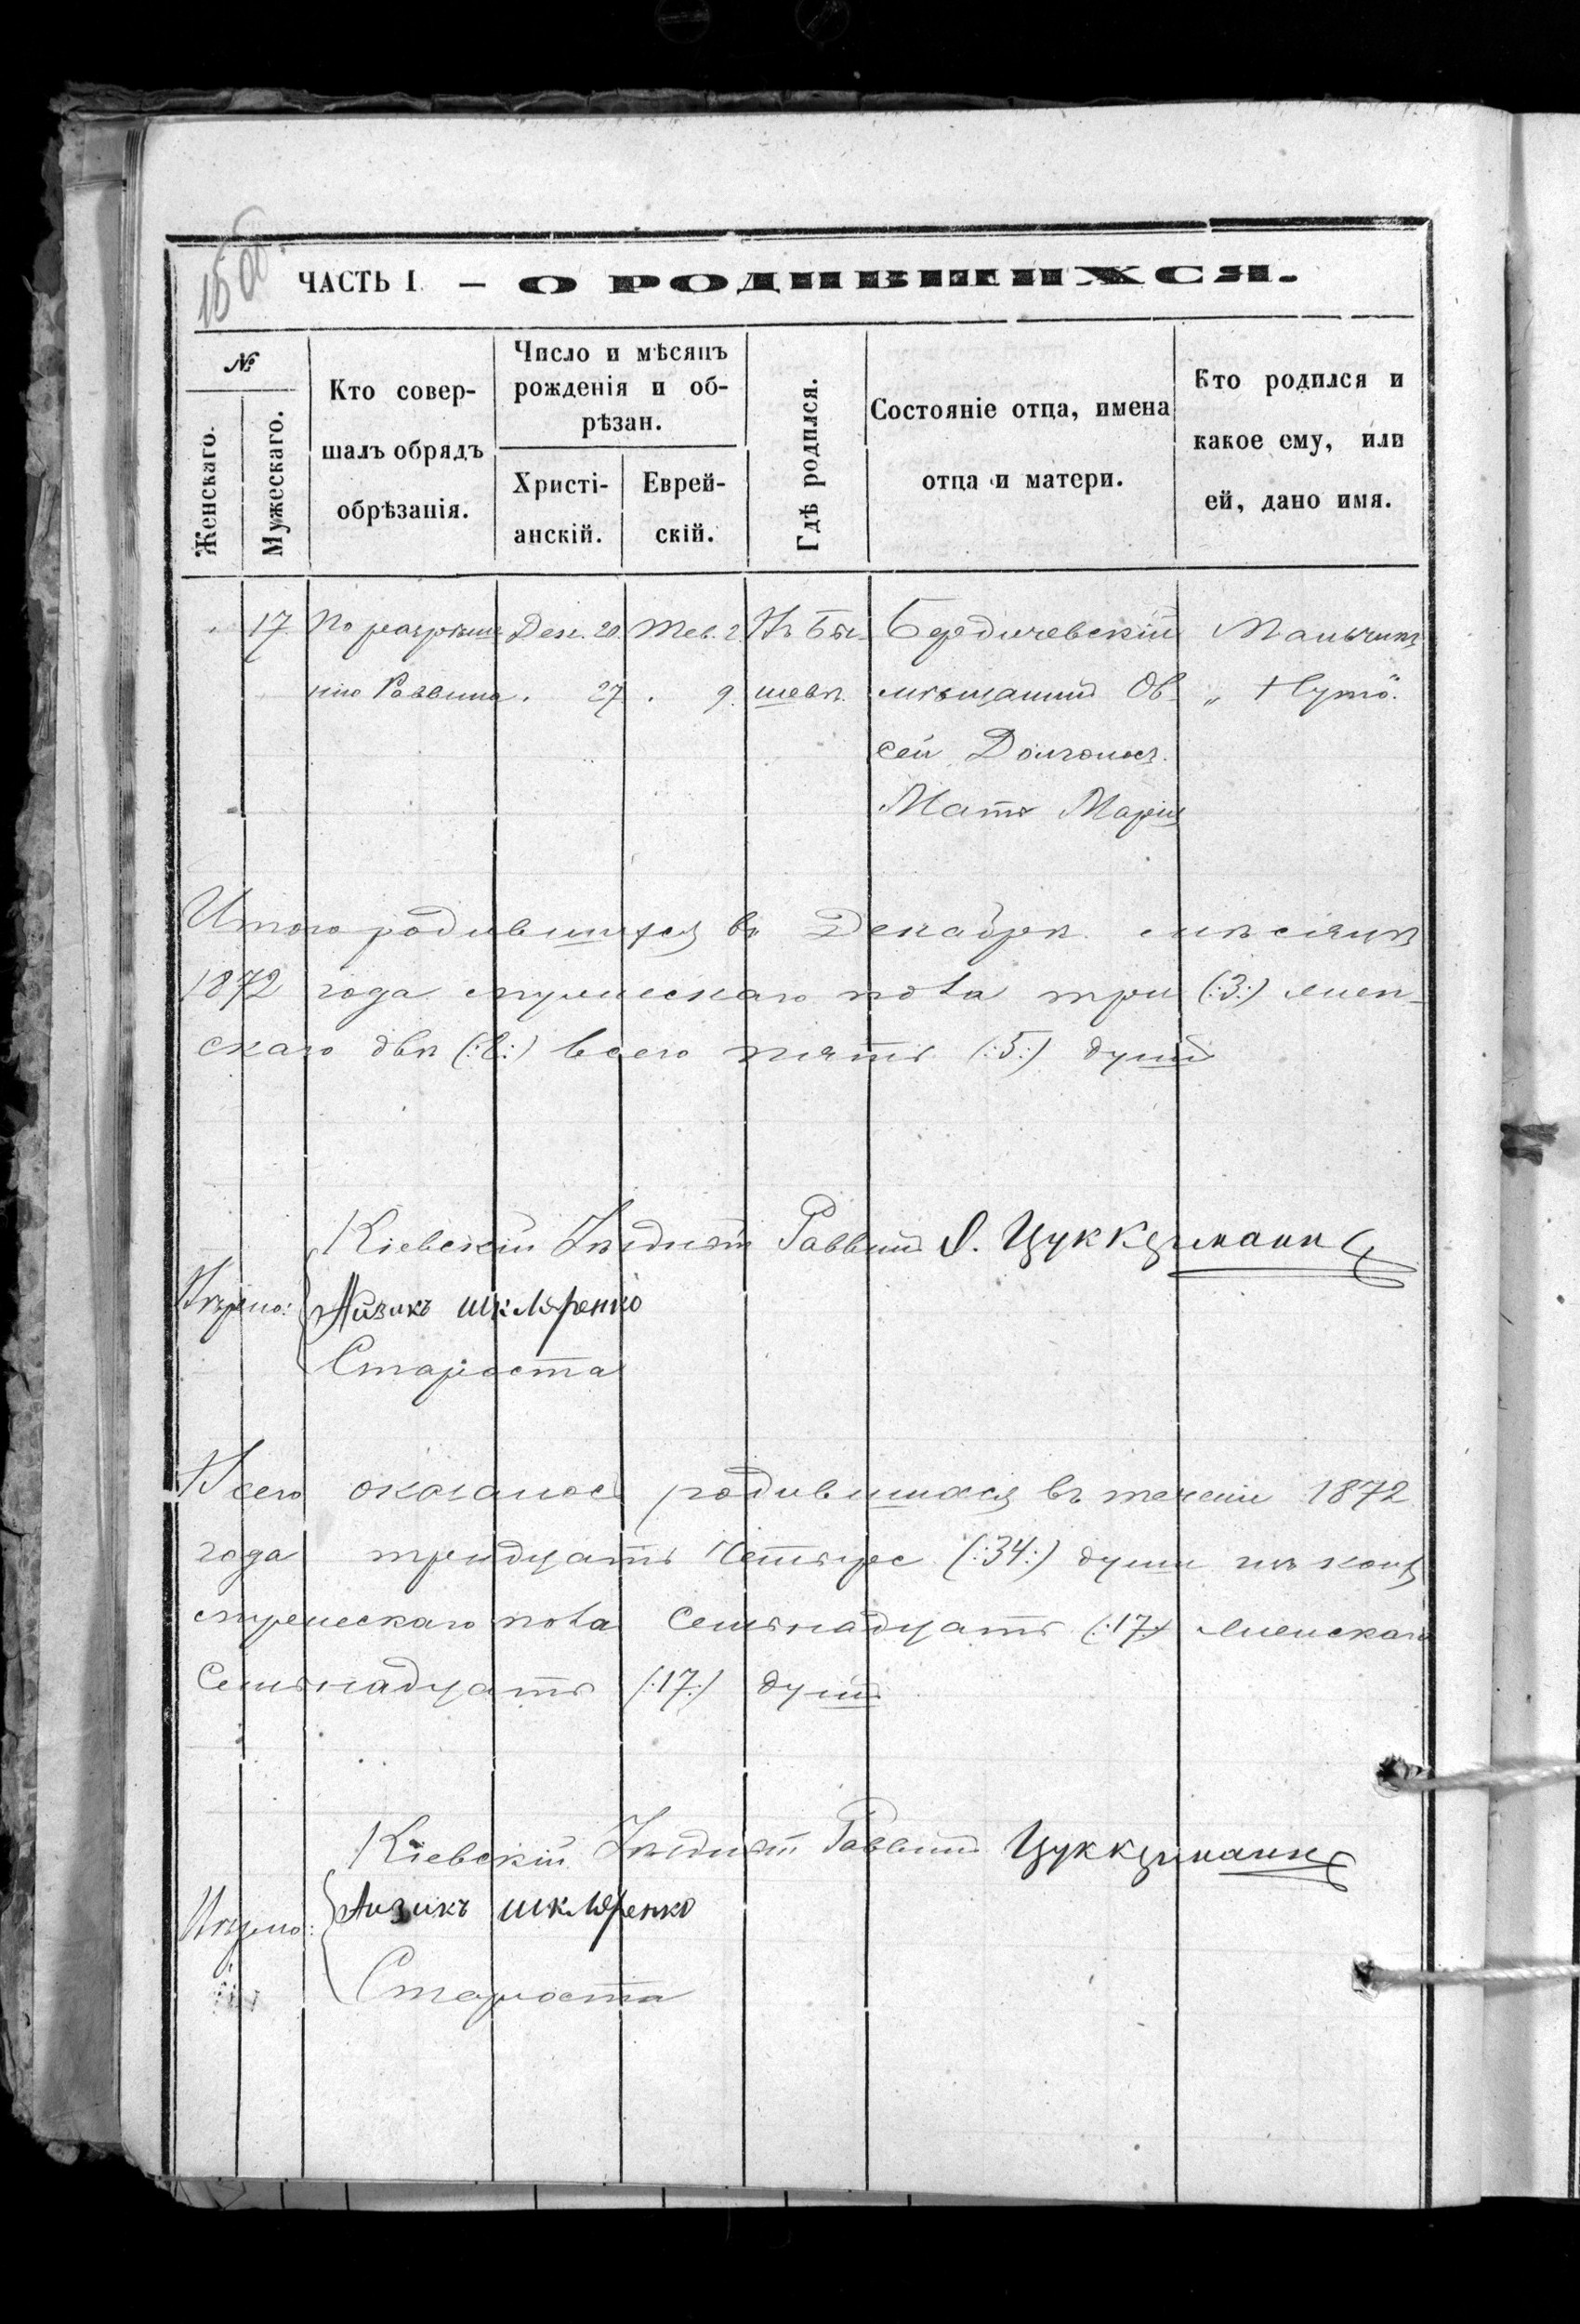 15 об.
ЧАСТЬ I. — О РОДИВШИХСЯ.
№
Женскаго.
Мужескаго.
Кто совер-
шалъ обрядъ
обрѣзанія.
Число и мѣсяцъ
рожденія и об-
рѣзан.
Христі-
анскій.
Еврей-
скій.
Гдѣ родился.
Состояніе отца, имена
отца и матери.
Кто родился и
какое ему, или
ей, дано имя.
17 По разрѣше- Дек. 20. Тев. 2. Въ Бы- Бердичевскій Мальчикъ
нію Раввина. 27. 9. шевѣ. мѣщанинъ Ов- „Нутъ“.
сей Долгоносъ.
Мать Марія
Итого родившихся въ Декабрѣ мѣсяцѣ
1872 года мужескаго пола три (:3:) жен-
скаго двѣ (:2:) всего пять (:5:) душъ
Кіевскій Уѣздный Раввинъ Цуккерманъ
Вѣрно: Айзикъ шкляренко
Староста
Всего оказалось родившихся въ теченіи 1872
года тридцать четыре (:34:) души изъ коихъ
мужескаго пола семьнадцать (:17:) женскаго
семьнадцать (:17:) душъ
Кіевскій Уѣздный Раввинъ Цуккерманъ
Вѣрно: Аизикъ шкляренко
Староста